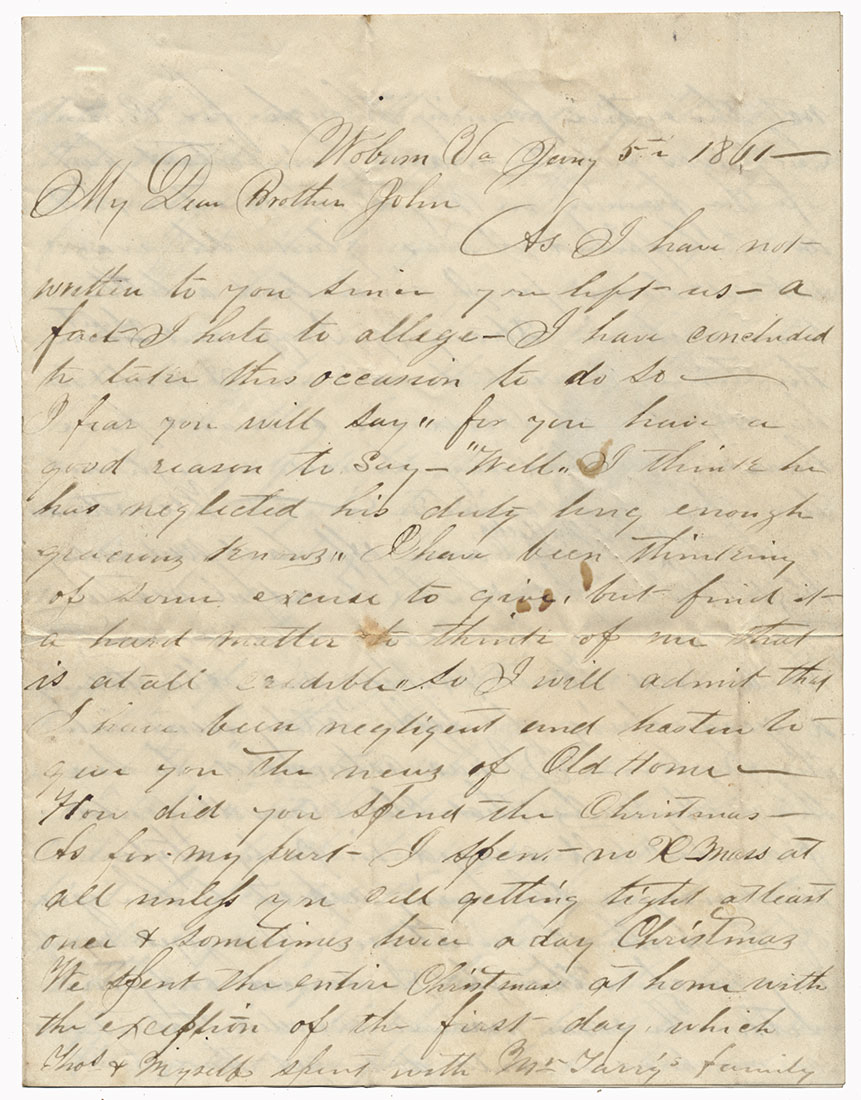 Woburn Va Jany 5th 1861—
My Dear Brother John
As I have not
written to you since you left us— a
fact I hate to allege— I have concluded
to take this occasion to do so—
I fear you will say,, for you have a
good reason to say— "Well,, I think he
has neglected his duty long enough
gracious knows,, I have been thinking
of some excuse to give, but find it
a hard matter to think of one that
is at all credible,, so I will admit that
I have been negligent and hasten to
give you the news of Old Home—
How did you spend the Christmas—
As for my part— I spent— no X Mass at
all unless you call getting tight at least
once & sometimes twice a day Christmas
We spent the entire Christmas at home with
the exception of the first day, which
Thos & Myself spent with Mr Tarry's family